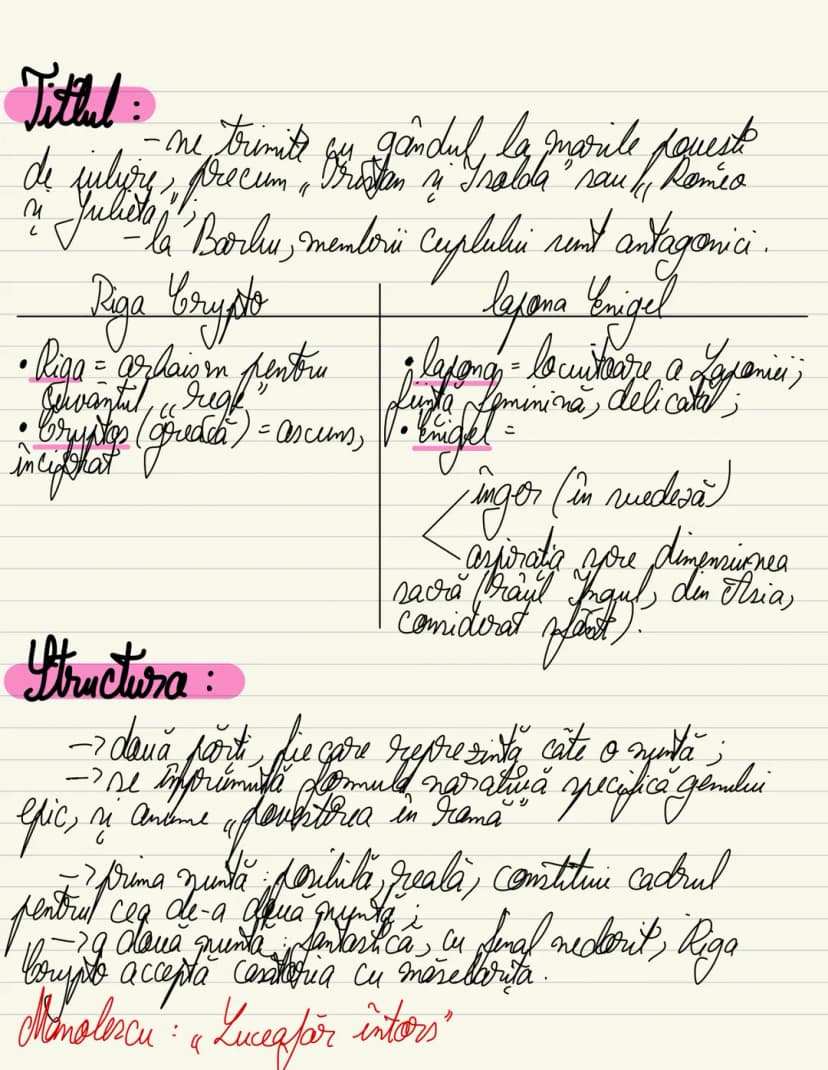 Titlul :
- ne trimite cu gândul la marile povești
de iubire, precum „Tristan și Isolda" sau „Romeo
și Julieta";
- la Barbu, membrii cuplului sunt antagonici.
Riga Crypto
lapona Enigel
• Riga = arhaism pentru
cuvântul „rege"
• Cryptos (greacă) = ascuns,
încifrat
• lapona = locuitoare a Laponiei;
ființă feminină, delicată;
• Enigel =
înger (în suedeză)
aspirația spre dimensiunea
sacră (râul Ingul, din Asia,
considerat sfânt).
Structura :
-> două părți, fiecare reprezintă câte o nuntă;
-> se împrumută formula narativă specifică genului
epic, și anume „povestirea în ramă"
-> prima nuntă: posibilă, reală, constituie cadrul
pentru cea de-a doua nuntă;
-> a doua nuntă: fantastică, cu final nedorit, Riga
Crypto acceptă căsătoria cu măselarița.
Manolescu : „Luceafăr întors"